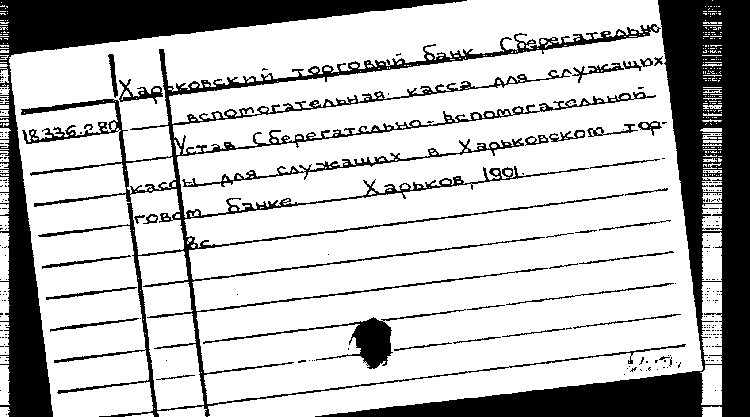 Харьковский торговый банк. Сберегательно-
вспомогательная касса для служащих.
18.336.2.80
Устав Сберегательно-вспомогательной
кассы для служащих в Харьковском тор-
говом банке. Харьков, 1901.
8с.